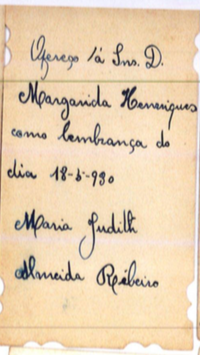 Ofereço á Snr. D.
Margarida Henriques
como lembrança do
dia 18-5-930
Maria Judith
Almeida Ribeiro